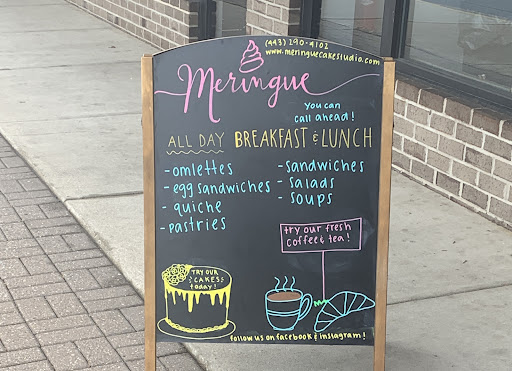 (443) 290-4102
www.meringuecakestudio.com
Meringue
You can
call ahead!
ALL DAY BREAKFAST & LUNCH
- omlettes
- egg sandwiches
- quiche
- pastries
- sandwiches
- salads
- soups
try our fresh
coffee & tea!
TRY OUR
CAKES
today!
follow us on facebook & instagram!